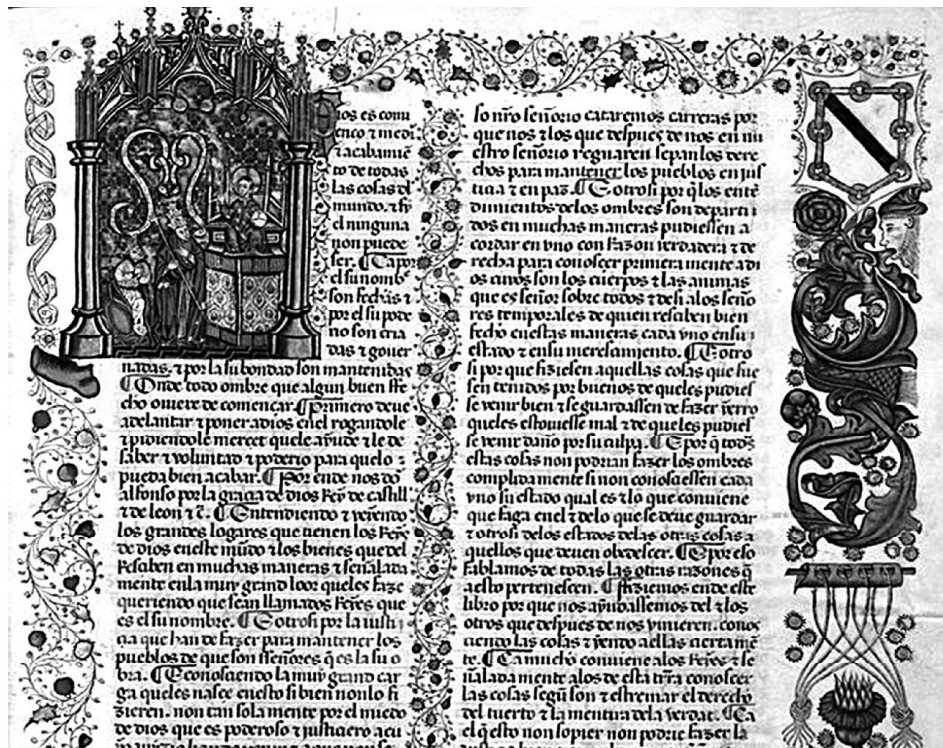 ios es comi
enço ⁊ medi
⁊ acabamiẽ
to de todas
las cosas ⁊l
mundo. ⁊ sy
el ninguna
non puede
ser. ¶ Ca por
el su nomb̃
son fechas ⁊
por el su pode
rio son cria
das ⁊ gouer
nadas. ⁊ por la su bondad son mantenidas
¶ Onde todo ombre que algun buen ffe
cho ouiere de començar. ¶ Primero deue
adelantar ⁊ poner a dios enel rogandole
⁊ pidiendole mercet quele ayude ⁊ le de
saber ⁊ voluntad ⁊ poderio para quelo
pueda bien acabar. ¶ Por ende nos dõ
alfonso por la gracia de dios Rey de castill
⁊ de leon ⁊ c̃. ¶ Entendiendo ⁊ veyendo
los grandes logares que tienen los Reys
de dios eneste mũdo ⁊ los bienes que del
Resaben en muchas maneras ⁊ señalada
mente enla muy grand loor queles faze
queriendo que sean llamados Reyes que
es el su nombre. ¶ E otrosi por la iusti
cia que han de fazer para mantener los
pueblos de que son sseñores q̃ es la su o
bra. ¶ E conosciendo la muy grand car
ga queles nasce enesto si bien nonlo fi
zieren. non tan sola mente por el miedo
de dios que es poderoso ⁊ justiciero a cu
so nr̃o señorio cataremos carreras por
que nos ⁊ los que despues de nos en nu
estro señorio regnaren sepan los dere
chos para mantener los pueblos en jus
ticia ⁊ en paz. ¶ E otrosi por q̃ los entẽ
dimientos delos ombres son departi
dos en muchas maneras pudiessen a
cordar en vno con Razon verdadera ⁊ de
recha para conoscer primera mente a di
os cuyos son los cuerpos ⁊ las animas
que es señor sobre todos ⁊ desi alos seño
res temporales de quien resciben bien
fecho enestas maneras cada vno en su
estado ⁊ ensu merescimiento. ¶ E otro
si por que fiziesen aquellas cosas que fue
sen tenidos por buenos de queles pudies
se venir bien ⁊ se guardassen de fazer yerro
queles estouiesse mal ⁊ de que les pudies
se venir daño por su culpa. ¶ E por q̃ todas
estas cosas non podrian fazer los ombres
complida mente si non conosciessen cada
vno su estado qual es ⁊ lo que conuiene
que faga enel ⁊ delo que se deue guardar
⁊ otrosi delos estados delas otras cosas a
quellos que deuen obedescer. ¶ E por eso
fablamos de todas las otras razones q̃
a esto pertenescen. ¶ E fiziemos ende este
libro por que nos ayudassemos del ⁊ los
otros que despues de nos viniesen. conos
ciendo las cosas ⁊ yendo a ellas cierta mẽ
te. ¶ Ca mucho conuiene alos Reyes ⁊ se
ñalada mente alos de esta tr̃ra conoscer
las cosas segũ son ⁊ estremar el derecho
del tuerto ⁊ la mentira dela verdat. ¶ Ca
el q̃ esto non sopier non podrie fazer la